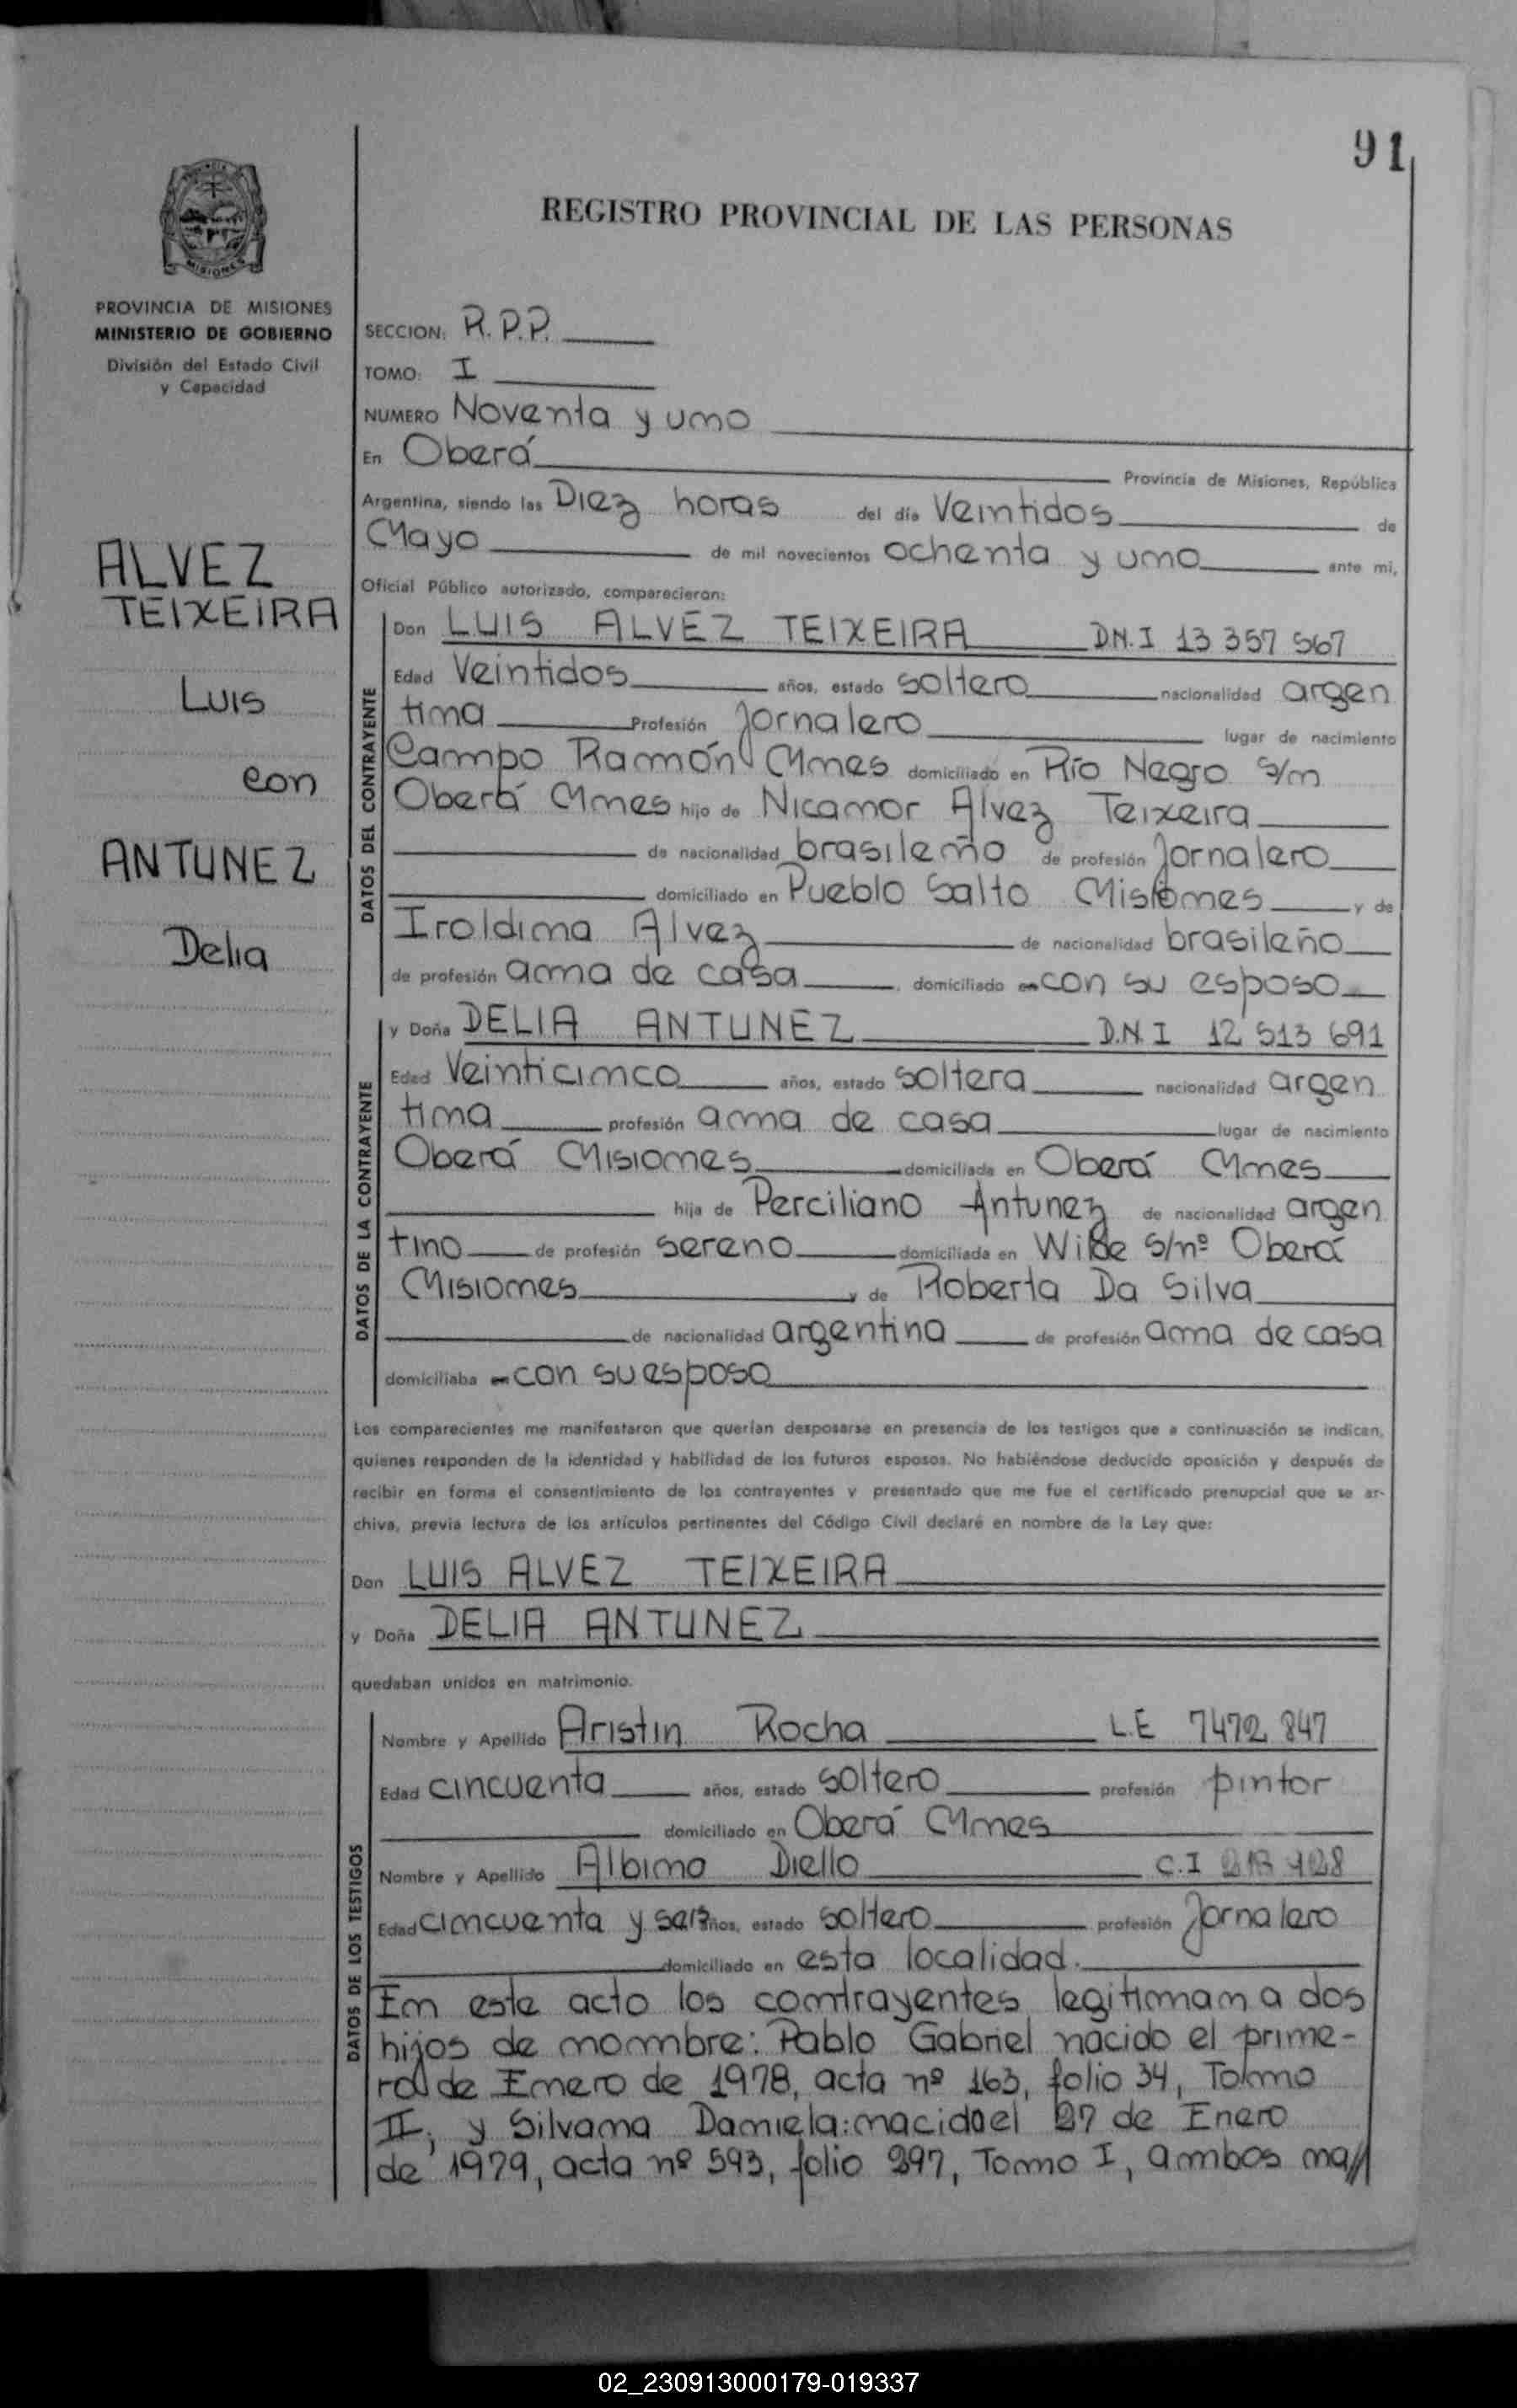 91
REGISTRO PROVINCIAL DE LAS PERSONAS
MISIONES
PROVINCIA DE MISIONES
MINISTERIO DE GOBIERNO
División del Estado Civil
y Capacidad
SECCION: R.P.P.
TOMO: I
NUMERO Noventa y uno
En Oberá Provincia de Misiones, República
Argentina, siendo las Diez horas del día Veintidos de
Mayo de mil novecientos ochenta y uno ante mi,
Oficial Público autorizado, comparecieron:
ALVEZ
TEIXEIRA
Luis
con
ANTUNEZ
Delia
DATOS DEL CONTRAYENTE
Don LUIS ALVEZ TEIXEIRA D.N.I 13 357 567
Edad Veintidos años, estado soltero nacionalidad argen
tina Profesión Jornalero lugar de nacimiento
Campo Ramón Mnes domiciliado en Río Negro s/n
Oberá Mnes hijo de Nicanor Alvez Teixeira
de nacionalidad brasileño de profesión Jornalero
domiciliado en Pueblo Salto Misiones y de
Iroldina Alvez de nacionalidad brasileño
de profesión ama de casa domiciliado en con su esposo
DATOS DE LA CONTRAYENTE
y Doña DELIA ANTUNEZ D.N.I 12 513 691
Edad Veinticinco años, estado soltera nacionalidad argen
tina profesión ama de casa lugar de nacimiento
Oberá Misiones domiciliada en Oberá Mnes
hija de Perciliano Antunez de nacionalidad argen
tino de profesión sereno domiciliada en Wilde s/nº Oberá
Misiones y de Roberta Da Silva
de nacionalidad argentina de profesión ama de casa
domiciliaba en con su esposo
Los comparecientes me manifestaron que querían desposarse en presencia de los testigos que a continuación se indican,
quienes responden de la identidad y habilidad de los futuros esposos. No habiéndose deducido oposición y después de
recibir en forma el consentimiento de los contrayentes y presentado que me fue el certificado prenupcial que se ar-
chiva, previa lectura de los artículos pertinentes del Código Civil declaré en nombre de la Ley que:
Don LUIS ALVEZ TEIXEIRA
y Doña DELIA ANTUNEZ
quedaban unidos en matrimonio.
DATOS DE LOS TESTIGOS
Nombre y Apellido Aristin Rocha L.E 7472 847
Edad cincuenta años, estado soltero profesión pintor
domiciliado en Oberá Mnes
Nombre y Apellido Albino Diello C.I
Edad cincuenta y seis años, estado soltero profesión Jornalero
domiciliado en esta localidad.
En este acto los contrayentes legitiman a dos
hijos de nombre: Pablo Gabriel nacido el prime-
ro de Enero de 1978, acta nº 163, folio 34, Tomo
II, y Silvana Daniela: nacida el 27 de Enero
de 1979, acta nº 593, folio 297, Tomo I, ambos na//
02_230913000179-019337